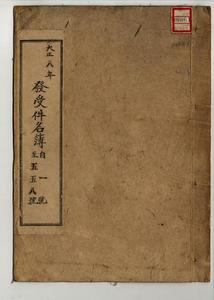 大正八年
發受件名簿
自一號
至五五八號